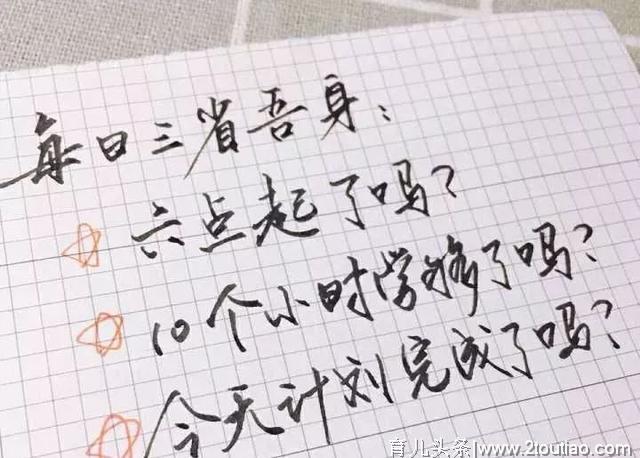 每日三省吾身：
六点起了吗？
10个小时学够了吗？
今天计划完成了吗？
育儿头条|www.2toutiao.com